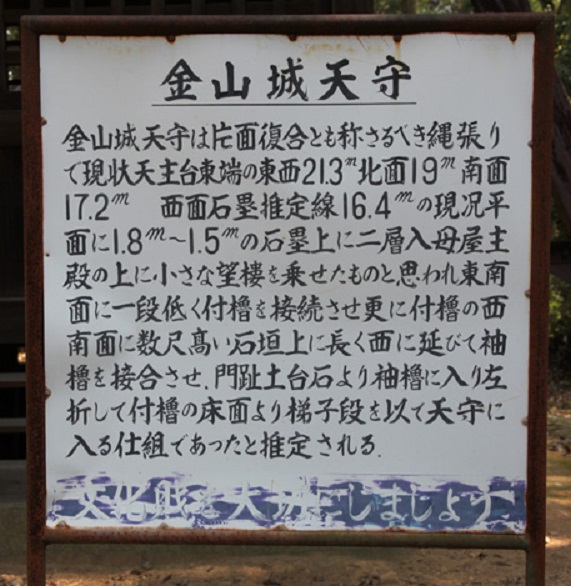 金山城天守
金山城天守は片面復合とも称さるべき縄張り
で現状天主台東端の東西21.3m北面19m南面
17.2m 西面石塁推定線16.4mの現況平
面に1.8m~1.5mの石塁上に二層入母屋主
殿の上に小さな望楼を乗せたものと思われ東南
面に一段低く付櫓を接続させ更に付櫓の西
南面に数尺高い石垣上に長く西に延びて袖
櫓を接合させ、門趾土台石より袖櫓に入り左
折して付櫓の床面より梯子段を以て天守に
入る仕組であったと推定される.
文化財を大切にしましょう